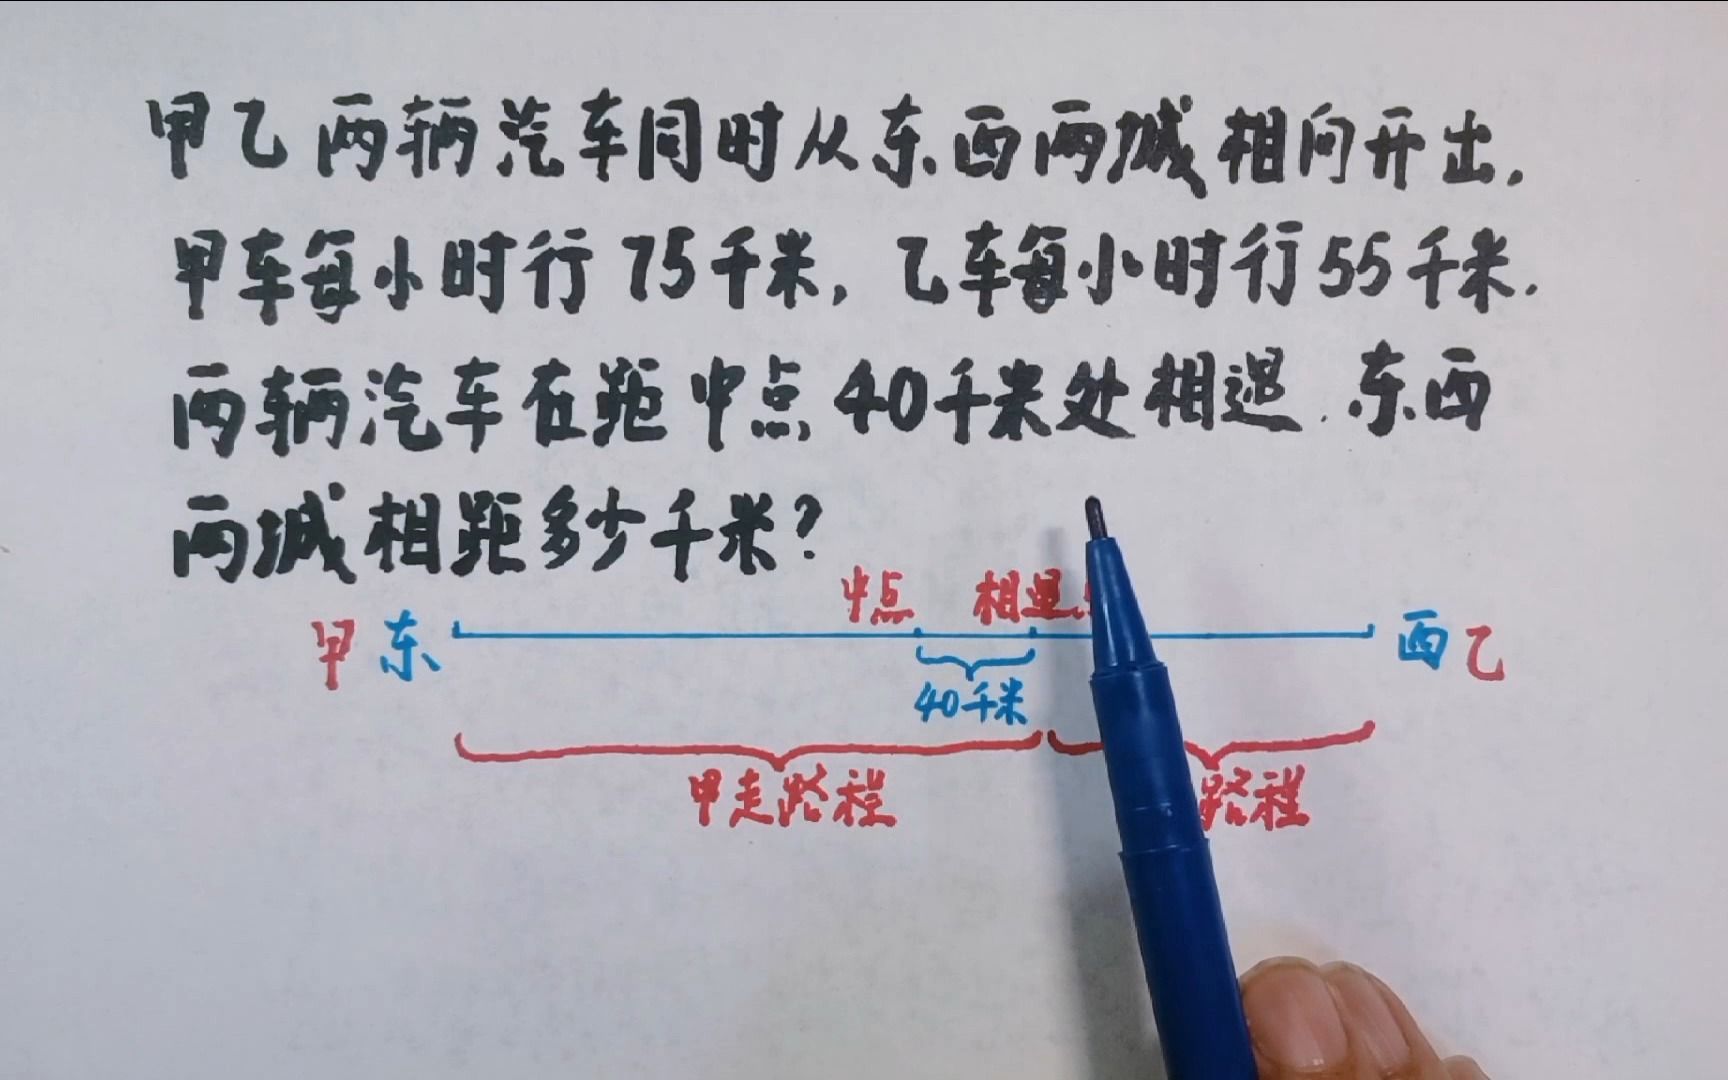 甲乙两辆汽车同时从东西两城相向开出.
甲车每小时行75千米,乙车每小时行55千米.
两辆汽车在距中点40千米处相遇.东西
两城相距多少千米?
中点 相遇
甲 东 西 乙
40千米
甲走路程 路程